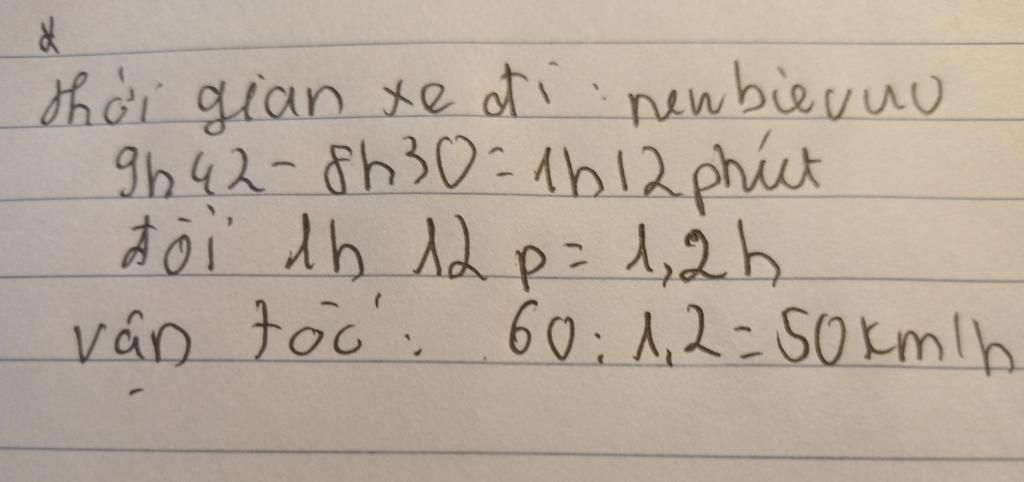 thời gian xe đi : newbievuu
9h42 - 8h30 = 1h12 phút
đổi 1h 12 p = 1,2h
vận tốc : 60 : 1,2 = 50 km/h